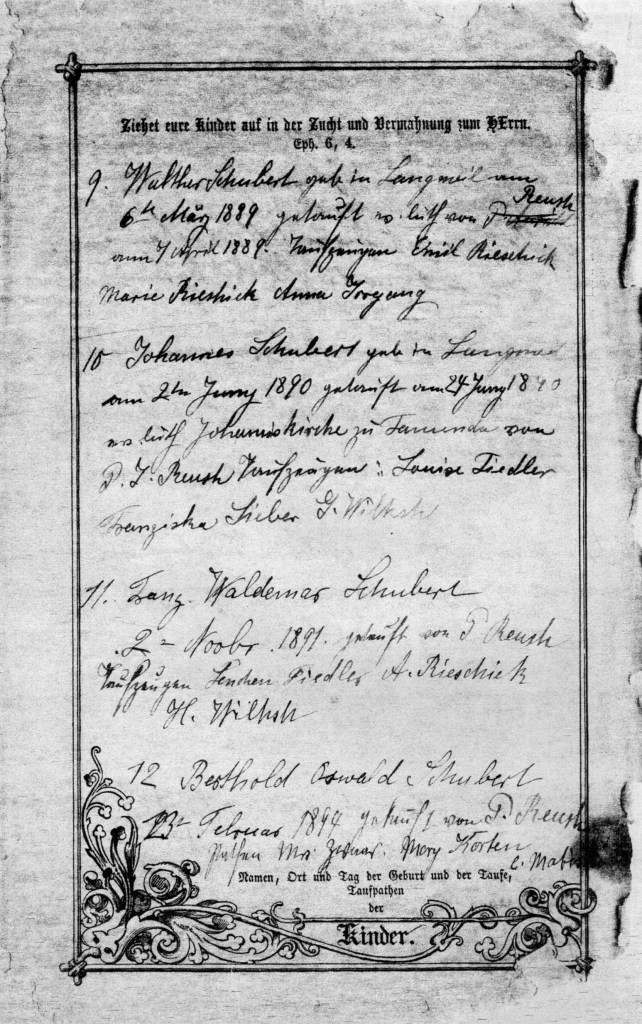 Ziehet eure Kinder auf in der Zucht und Vermahnung zum HErrn.
Eph. 6, 4.
9. Walther Schubert geb in Langmeil am
Reush
6te März 1889 getauft ev. luth von P.
am 7 April 1889. Taufzeugen Emil Rieschick
Marie Rieshick Anna Irrgang
10 Johannes Schubert geb in Langmeil
am 2te Juny 1890 getauft am 24 Juny 1890
ev luth Johanniskirche zu Tanunda von
P. J. Reush Taufzeugen: Louise Fiedler
Franziska Sieber G. Wilksh
11. Franz Waldemar Schubert
2 Novbr 1891. getauft von P Reush
Taufzeugen Lenchen Fiedler A. Rieschiek
H. Wilksh
12 Berthold Oswald Schubert
Februar 1894 getauft von P. Reush
Pathen Mrs Zwar. Mery Korten
Namen, Ort und Tag der Geburt und der Taufe,
Taufpathen
der
Kinder.